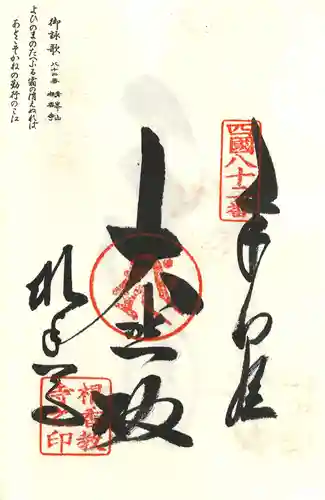 四國八十二番
奉納経
大悲殿
根香寺
根香教
寺之印
御詠歌 八十二番 青峰山 根香寺
よひのまのたへふる霜の消えぬれば
あとこそかねの勤行のこゑ